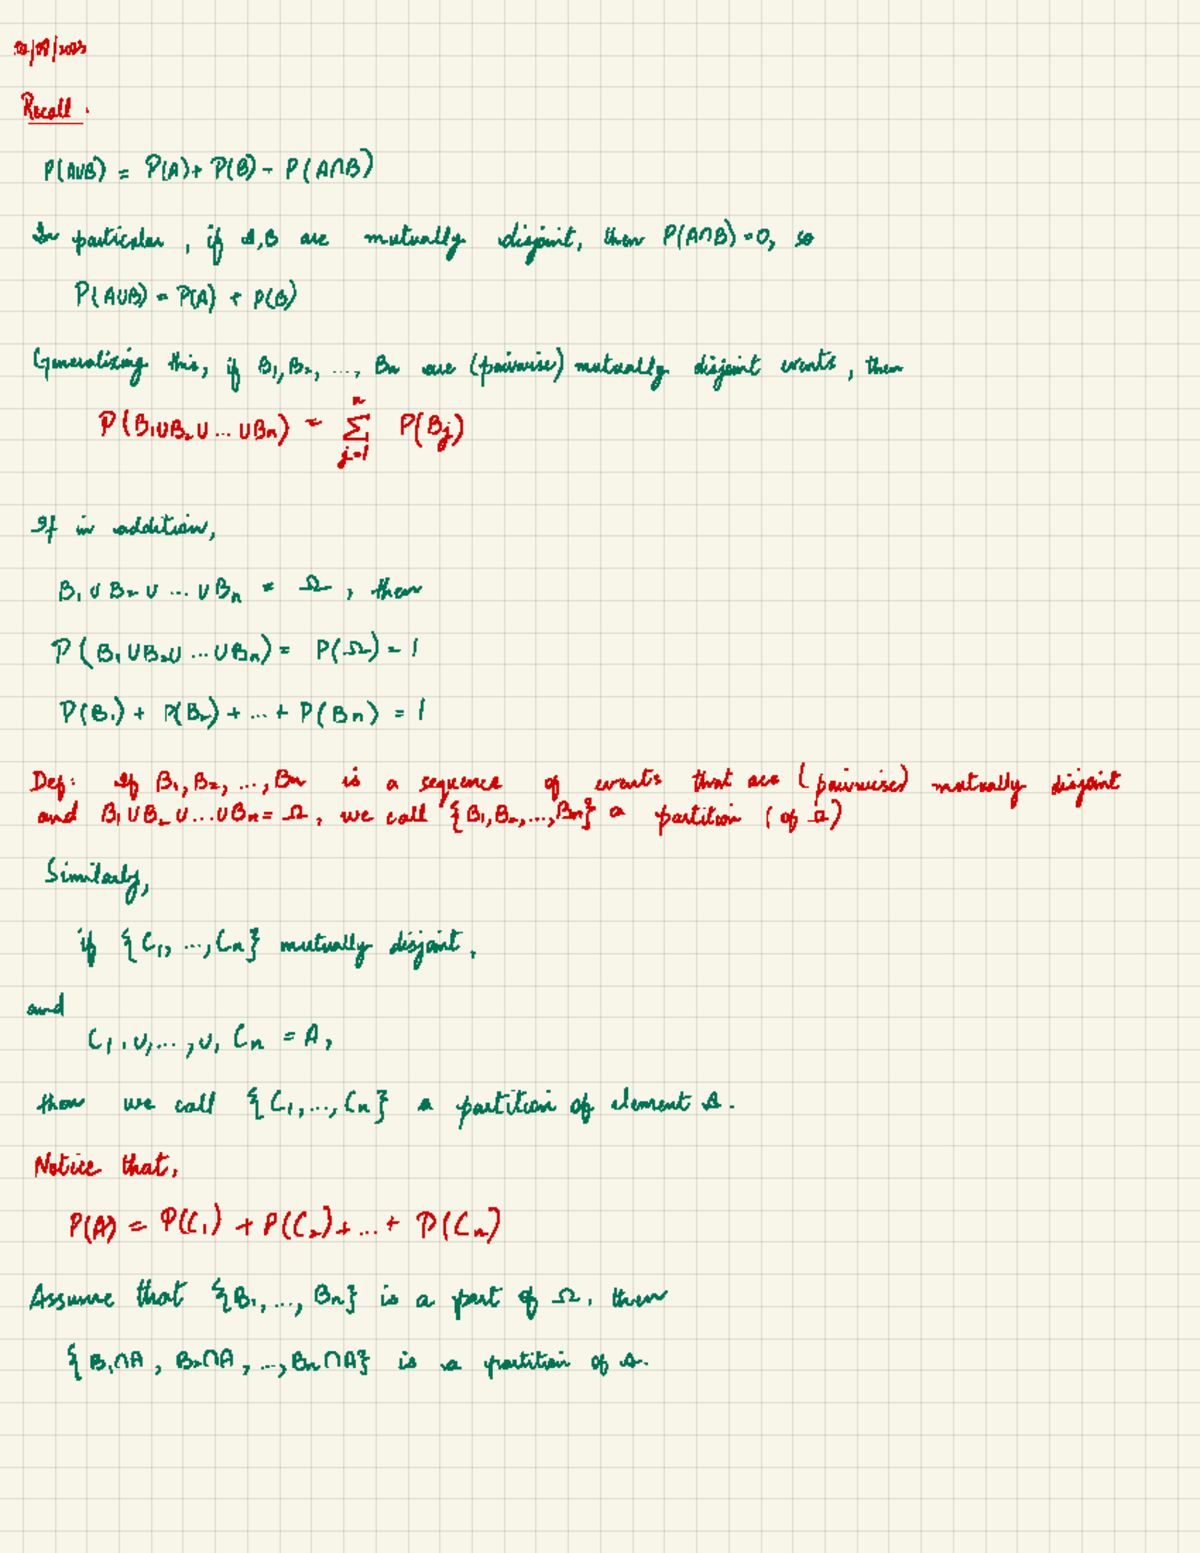 Recall.
P(A∪B) = P(A) + P(B) - P(A∩B)
In particular, if A,B are mutually disjoint, then P(A∩B)=0, so
P(A∪B) = P(A) + P(B)
Generalizing this, if B₁, B₂, ..., Bn are (pairwise) mutually disjoint events, then
P(B₁∪B₂∪...∪Bn) = n∑j=1 P(Bj)
If in addition,
B₁∪B₂∪...∪Bn = Ω, then
P(B₁∪B₂∪...∪Bn) = P(Ω) = 1
P(B₁) + P(B₂) + ... + P(Bn) = 1
Def: If B₁, B₂, ..., Bn is a sequence of events that are (pairwise) mutually disjoint
and B₁∪B₂∪...∪Bn = Ω, we call {B₁, B₂, ..., Bn} a partition (of Ω)
Similarly,
if {C₁, ..., Cn} mutually disjoint,
and
C₁,∪,...,∪, Cn = A,
then we call {C₁, ..., Cn} a partition of element A.
Notice that,
P(A) = P(C₁) + P(C₂) + ... + P(Cn)
Assume that {B₁, ..., Bn} is a part of Ω, then
{B₁∩A, B₂∩A, ..., Bn∩A} is a partition of A.